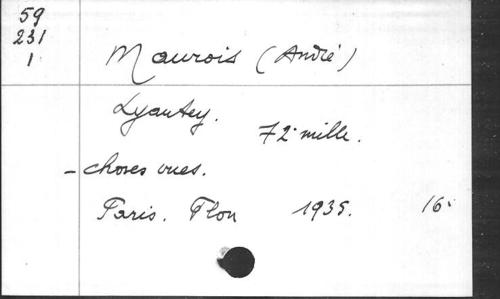 59
231
1
Maurois (André)
Lyautey.
72e mille.
- choses vues.
Paris. Plon 1935. 16°